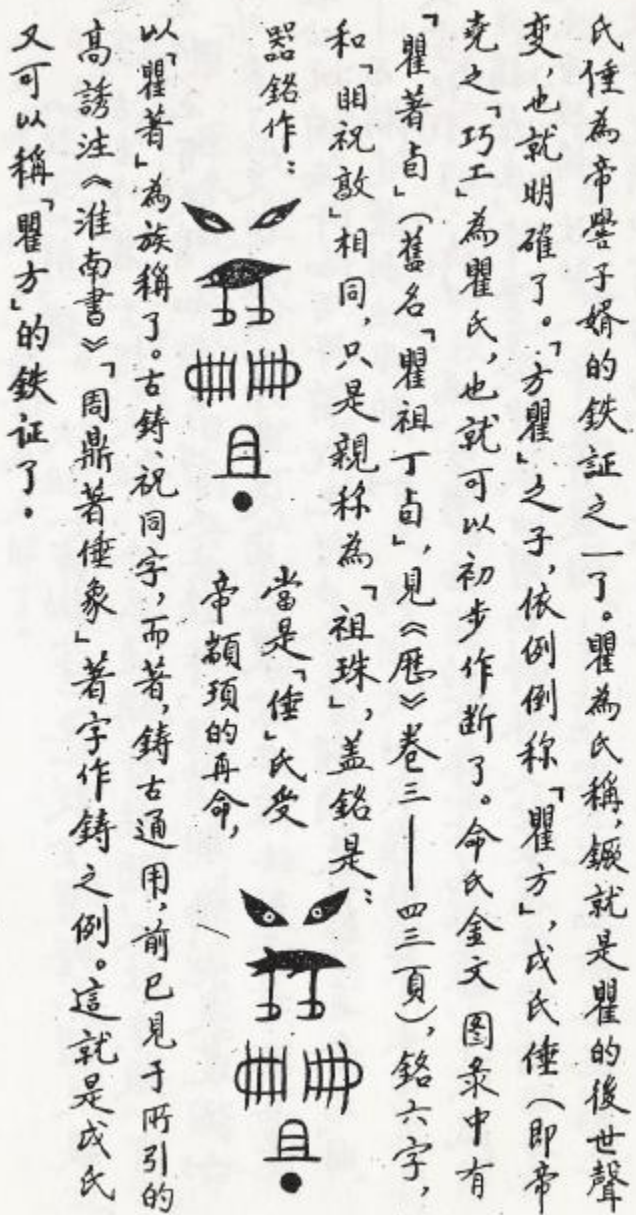 氏倕為帝嚳子婿的鉄証之一了。瞿為氏稱,鐝就是瞿的後世聲
变,也就明確了。「方瞿」之子,依例倒称「瞿方」,戉氏倕(即帝
尭之「巧工」為瞿氏,也就可以初步作断了。命氏金文图彔中有
「瞿著卣」(舊名「瞿祖丁卣」,見《歷》卷三——四三頁),銘六字,
和「䀠祝敦」相同,只是親称為「祖珠」,盖銘是:
器銘作:
當是「倕」氏受
帝顓頊的再命,
以「瞿著」為族稱了。古鋳、祝同字,而著,鋳古通用,前已見于所引的
高誘注《淮南書》「周鼎著倕象」著字作鋳之例。這就是戉氏
又可以稱「瞿方」的鉄证了。